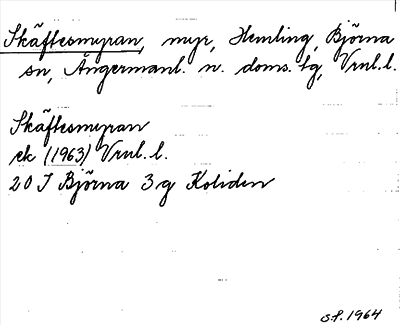 Skäftesmyran, myr, Hemling, Björna
sn, Ångermanl. n. doms. tg, Vrnl. l.
Skäftesmyran
ek (1963) Vrnl. l.
20 J Björna 3 g Koliden
S.P. 1964